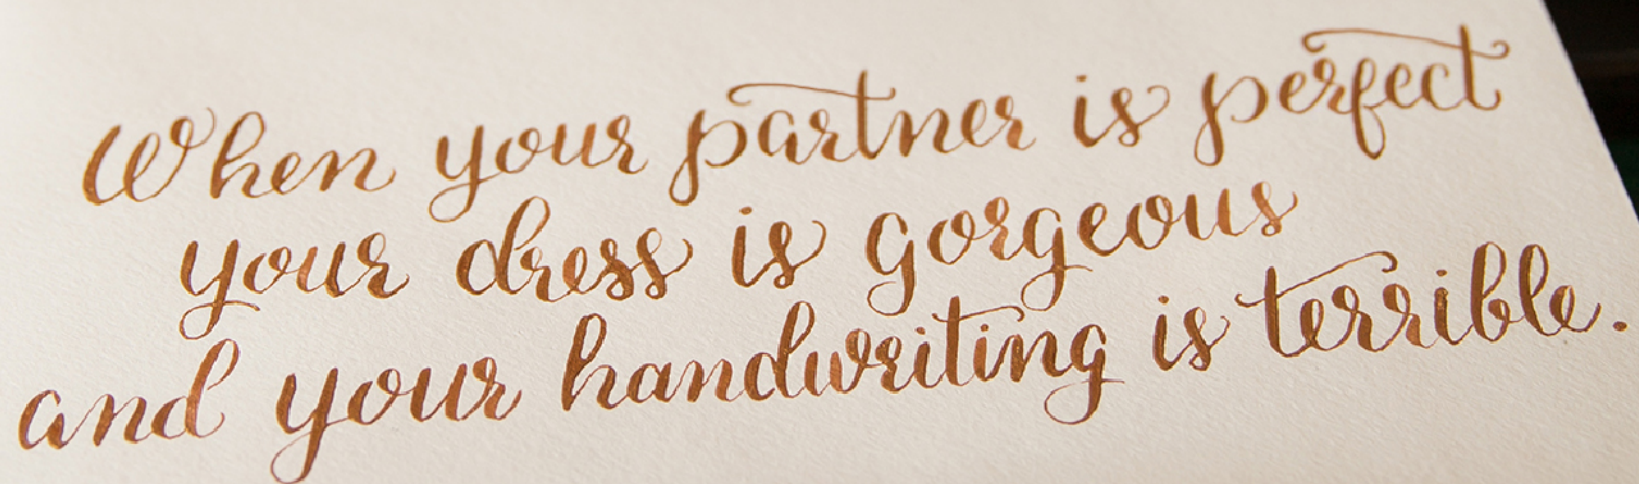 When your partner is perfect
your dress is gorgeous
and your handwriting is terrible.